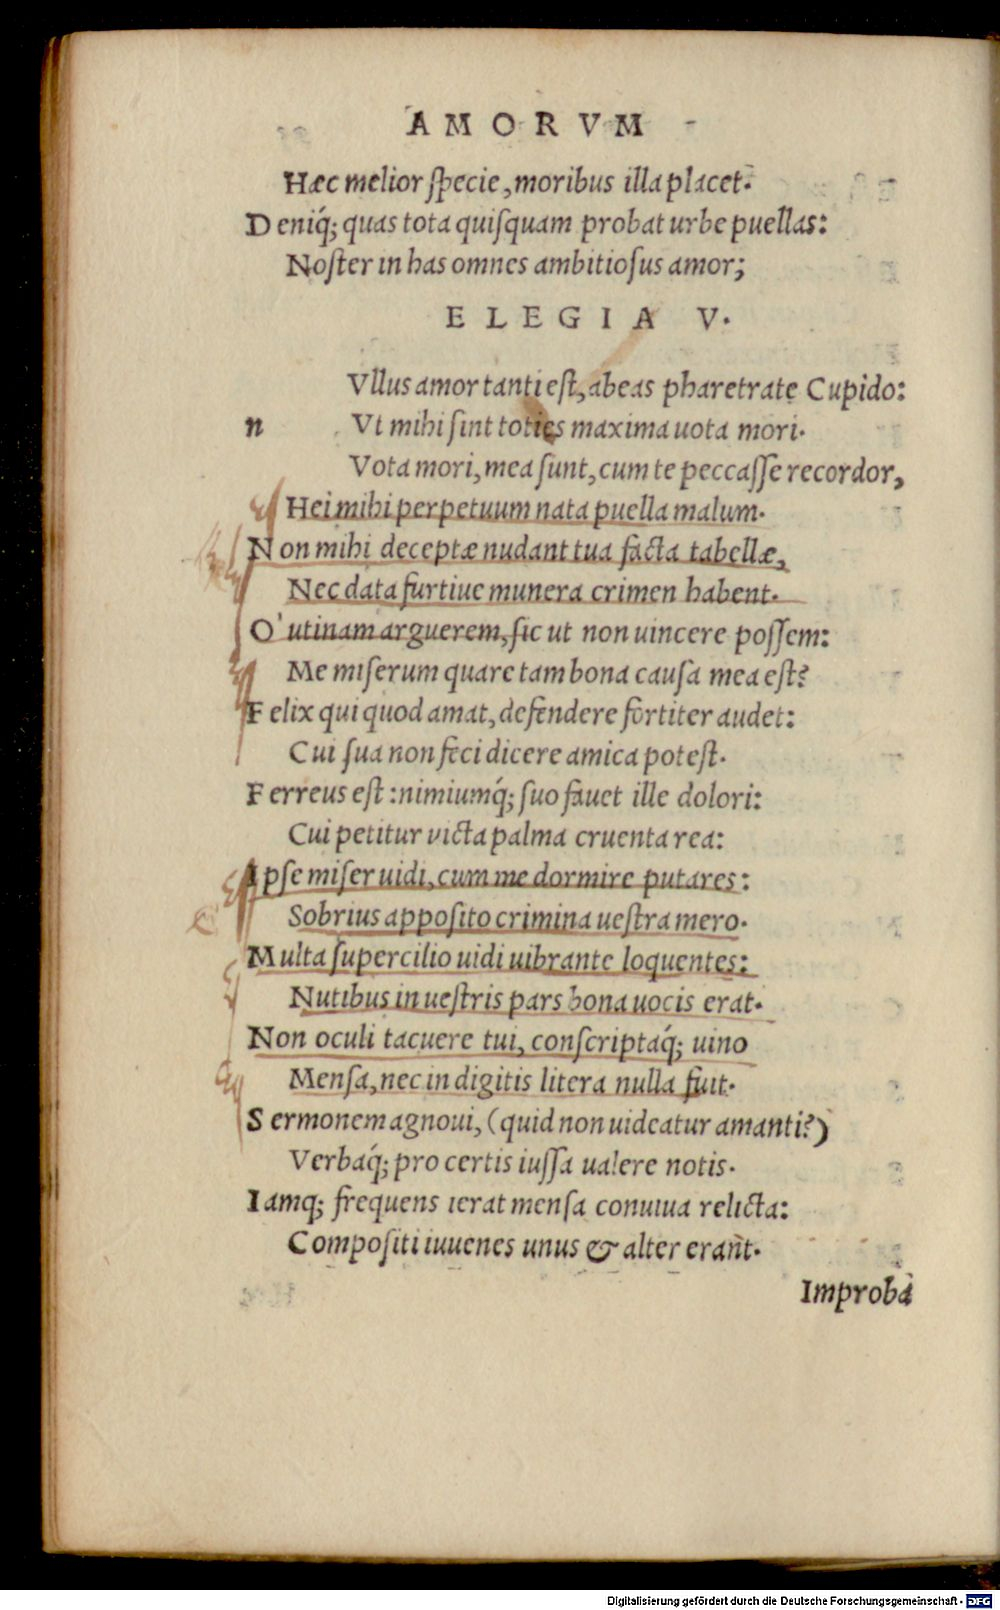 AMORVM
Hæc melior specie, moribus illa placet.
Deniq́; quas tota quisquam probat urbe puellas:
Noster in has omnes ambitiosus amor;
ELEGIA V.
Vllus amor tanti est, abeas pharetrate Cupido:
n Vt mihi sint toties maxima uota mori.
Vota mori, mea sunt, cum te peccasse recordor,
Hei mihi perpetuum nata puella malum.
Non mihi deceptæ nudant tua facta tabellæ,
Nec data furtiue munera crimen habent.
O' utinam arguerem, sic ut non uincere possem:
Me miserum quare tam bona causa mea est?
Felix qui quod amat, defendere fortiter audet:
Cui sua non feci dicere amica potest.
Ferreus est: nimiumq́; suo fauet ille dolori:
Cui petitur victa palma cruenta rea:
Ipse miser uidi, cum me dormire putares:
Sobrius apposito crimina uestra mero.
Multa supercilio uidi uibrante loquentes:
Nutibus in uestris pars bona uocis erat.
Non oculi tacuere tui, conscriptaq́; uino
Mensa, nec in digitis litera nulla fuit.
Sermonem agnoui, (quid non uideatur amanti?)
Verbaq́; pro certis iussa ualere notis.
Iamq; frequens ierat mensa conuiua relicta:
Compositi iuuenes unus & alter erant.
Improba
Digitalisierung gefördert durch die Deutsche Forschungsgemeinschaft - DFG